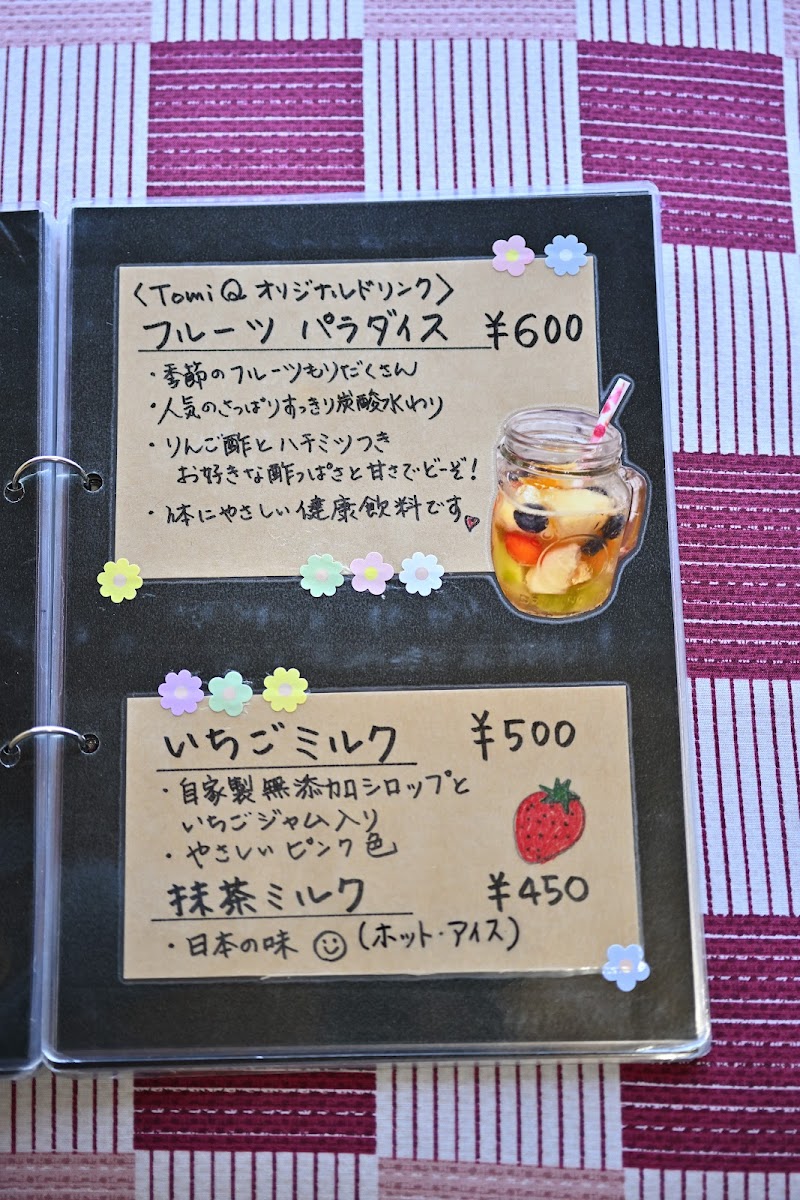 〈TomiQ オリジナルドリンク〉
フルーツ パラダイス ¥600
・季節のフルーツもりだくさん
・人気のさっぱりすっきり炭酸水わり
・りんご酢とハチミツつき
お好きな酸っぱさと甘さでどーぞ!
・体にやさしい健康飲料です
いちごミルク ¥500
・自家製無添加シロップと
いちごジャム入り
・やさしいピンク色
抹茶ミルク ¥450
・日本の味 (ホット・アイス)